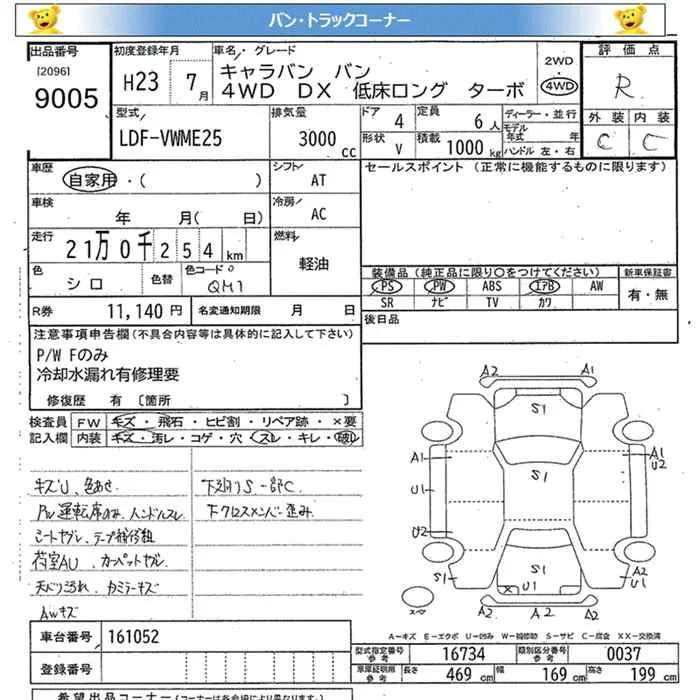 バン・トラックコーナー
出品番号
[2096]
9005
初度登録年月
H23 7月
車名/グレード
キャラバン バン
4WD DX 低床ロング ターボ
2WD・4WD
評価点
R
外装 内装
C C
型式/
LDF-VWME25
排気量
3000 cc
ドア 4
形状 V
定員 6人
積載 1000 kg
ディーラー・並行
モデル年式 年
ハンドル 左・右
車歴
自家用・( )
シフト/ AT
セールスポイント(正常に機能するものに限ります)
車検
年 月( 日)
冷房/ AC
走行
21万0千254km
燃料/
軽油
色
シロ
色替
色コード
QM1
装備品(純正品に限り○をつけてください)
新車保証書
PS PW ABS エアB AW
SR ナビ TV カワ
有・無
R券 11,140円
名変通知期限 月 日
後日品
注意事項申告欄(不具合内容等は具体的に記入して下さい)
P/W Fのみ
冷却水漏れ有修理要
修復歴 有 [箇所 ]
検査員記入欄
FW キズ・飛石・ヒビ割・リペア跡・×要
内装 キズ・汚レ・コゲ・穴・スレ・キレ・破レ
キズU、色あせ
下廻りS 一部C
PW運転席のみ ハンドルスレ
下クロスメンバー歪み
シートヤブレ、テープ補修 
荷室AU、カーペットヤブレ
天バリ汚れ
AWキズ
A2 A1
S1
A1
U1
U2
S1
A1
U2
S1
U1
S1
A2
U1
A2 A2 A2
A-キズ E-エクボ U-凹み W-補修跡 S-サビ C-腐食 XX-交換済
車台番号 161052
型式指定番号 参考 16734
類別区分番号 参考 0037
登録番号
車庫証明用 参考
長さ 469 cm
幅 169 cm
高さ 199 cm
希望出品コーナー(コーナーは各会場により異なります)